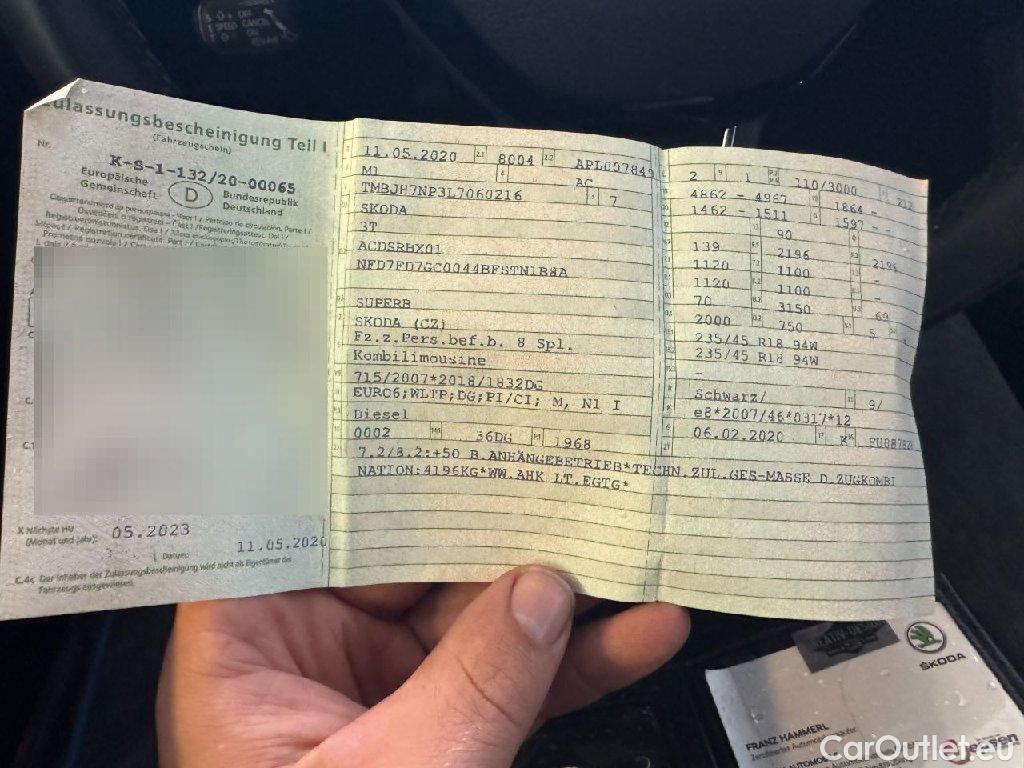 Zulassungsbescheinigung Teil I
(Fahrzeugschein)
Nr.
K-S-1-132/20-00065
Europäische
Gemeinschaft
D
Bundesrepublik
Deutschland
X Nächste HU
(Monat und Jahr):
05.2023
Datum:
11.05.2020
C.4c Der Inhaber der Zulassungsbescheinigung wird nicht als Eigentümer des
Fahrzeugs ausgewiesen.
11.05.2020 2.1 8004 2.2
M1 AC
TMBJH7NP3L7060216 7
SKODA
3T
ACDSRHX01
SUPERB
SKODA (CZ)
Fz.z.Pers.bef.b. 8 Spl.
Kombilimousine
715/2007*2018/1832DG
EURO6;WLTP;DG;PI/CI; M, N1 I
Diesel
0002 36DG 1968
7.2/8.2:+50 B.ANHÄNGEBETRIEB*TECHN.ZUL.GES-MASSE D.ZUGKOMBI
NATION:4196KG*WW.AHK LT.EGTG*
2 1 110/3000 212
4862 - 4967 1864 -
1462 - 1511 1597 -
90 -
139 2196 2196
1120 1100 -
1120 1100 -
70 3150 69
2000 750 5
235/45 R18 94W
235/45 R18 94W
Schwarz/ 9/
e8*2007/46*0317*12
06.02.2020 K
SPEED CANCEL
ŠKODA
FRANZ HAMMERL
CarOutlet.eu